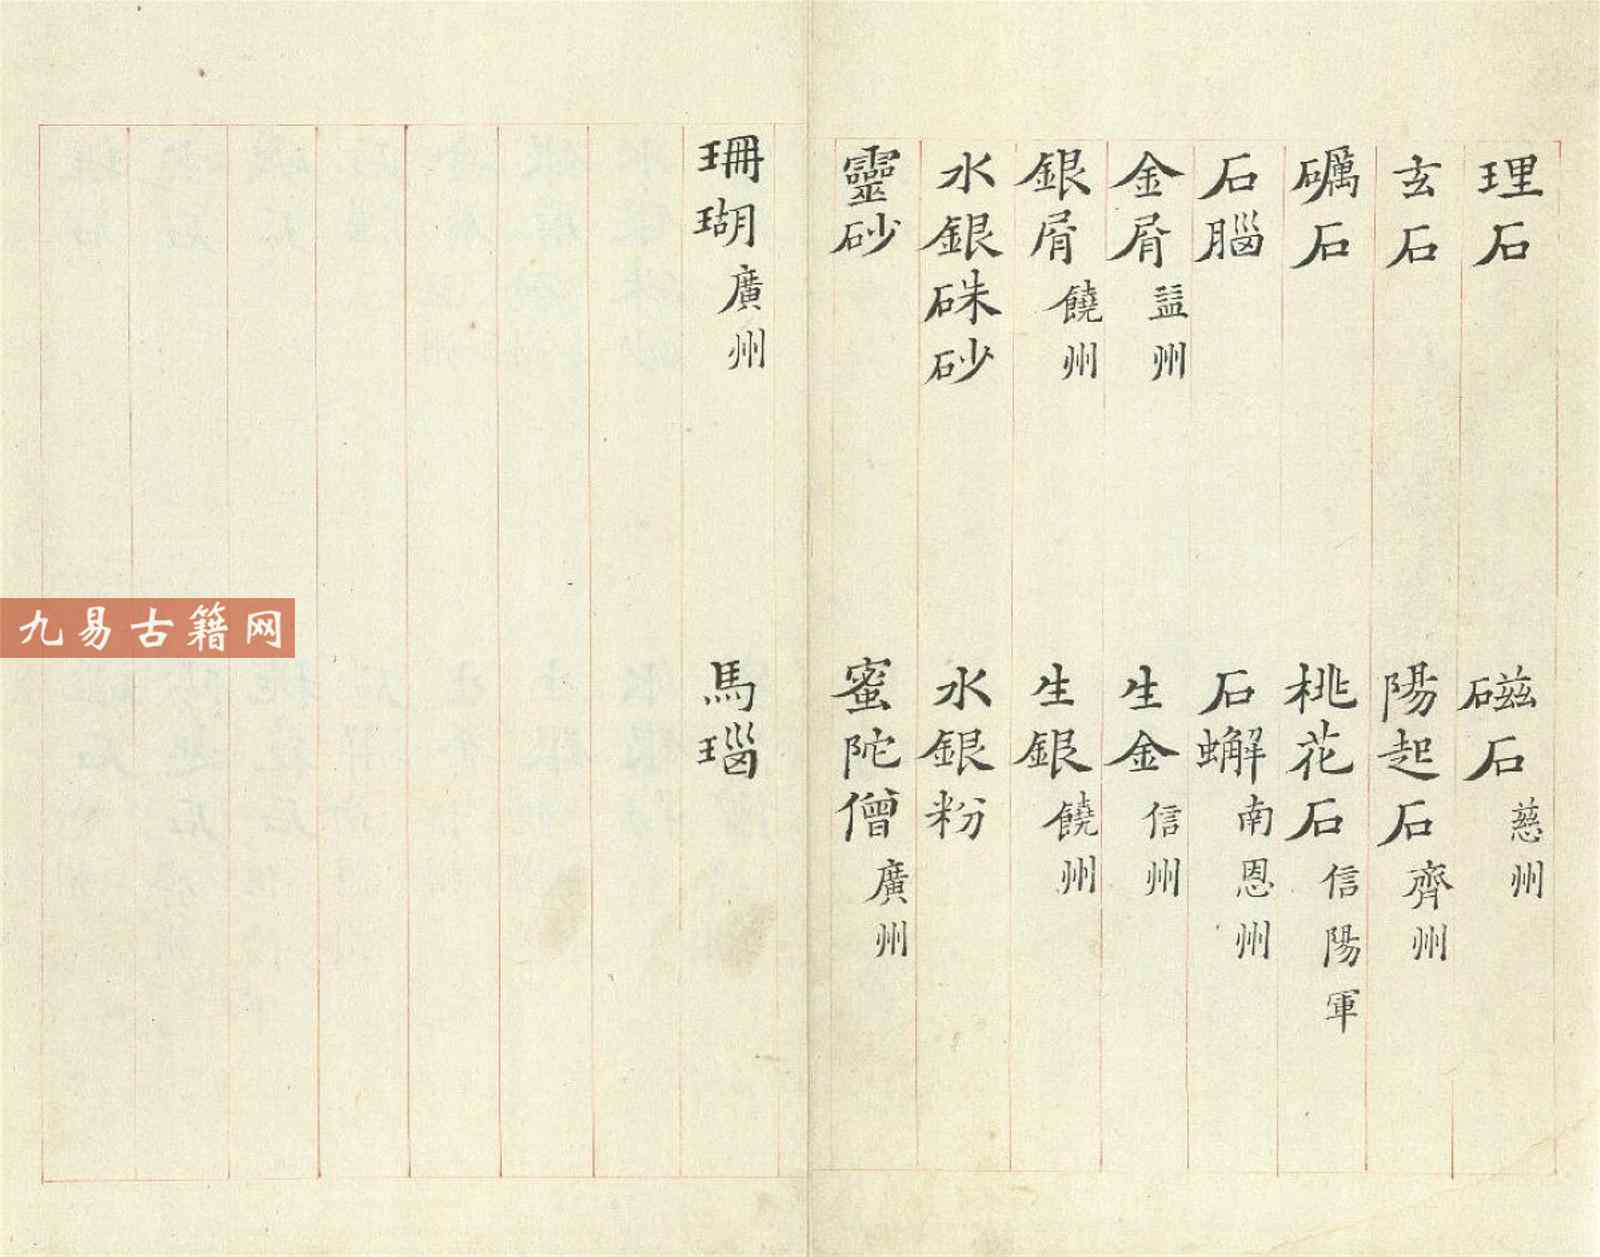 理石 磁石慈州
玄石 陽起石齊州
礪石 桃花石信陽軍
石腦 石蠏南恩州
金屑益州 生金信州
銀屑饒州 生銀饒州
水銀硃砂 水銀粉
靈砂 蜜陀僧廣州
珊瑚廣州 馬瑙
九易古籍网